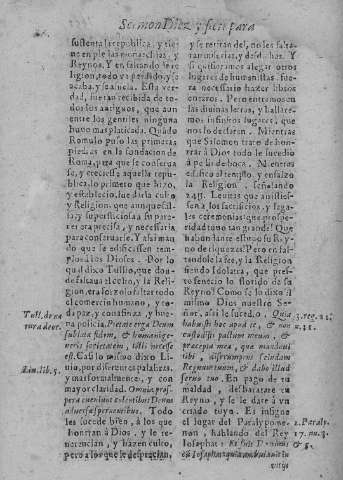 Sermon Diez y siete para
sustenta la republica, y tie-
ne en pie las monarchias, y
Reynos. Y en faltando le re
ligion, todo va perdido, y se a
caba, y se anula. Esta ver-
dad, fue tan recibida de to-
dos los antiguos, que aun
entre los gentiles ninguna
huvo mas platicada. Quãdo
Romulo puso las primeras
piedras en la fundacion de
Roma, para que se conserva
se, y creciesse aquella repu
blica, lo primero que hizo,
y establecio, fue darla culto
y Religion, que aunque fal-
sa, y supersticiosa a su pare-
cer era precisa, y necessaria
para conservarse. Y así man
do que se edificassen tem-
plos a los Dioses. Por lo
qual dixo Tullio, que don-
de faltaua el culto, y la Reli-
gion, era forzoso faltar todo
el comercio humano, y to-
da paz, y confiança, y hue
na policia. Pietate erga Deum
sublata fidem, & humani ge-
neris societatem, tolli necesse
est. Casi lo mismo dixo Li
uio, por diferentes palabras,
y mas formalmente, y con
mayor claridad. Omnia pros-
pera eueniunt colentibus Deum
aduersa spernentibus. Todo
les sucede bien, a los que
honran a Dios, y le re-
uerencian, y hazen culto,
pero a los que le desprecian,
y se retiran del, no les falta-
ran miserias, y desdichas. Y
si quisieramos alegar otros
lugares de humanistas, fue-
ra necessario hazer libros
enteros. Pero entremos en
las divinas letras, y halla re
mos infinitos lugares, que
nos lo declaren. Mientras
que Salomon trato de honrar
a Dios todo le sucedio
a pedir de boca.
edifico al templo, y ensalzo
la Religion, señalando
Leuitas que assistie-
sen a los sacrificios, y sagra-
les ceremonias que prospe-
ridad tuuo tan grande! Que
no de riquezas. Pero en fal-
tandole la fee, y la Religion
siendo Idolatra, que pres-
to fenecio lo florido de su
Reyno! Como se lo dixo el
mismo Dios nuestro Se-
ñor, assi le sucedio. Quia
habuisti hoc apud te, & non
custodisti pactum meum, &
præcepta mea, quæ mandaui
tibi, disrumpens scindam
Regnum tuum, & dabo illud
seruo tuo. En pago de tu
maldad, desbaratare tu
Reyno, y se le dare a vn
criado tuyo. Es insigne
el lugar del Paralypome-
non, hablando del Rey
Iosaphat: Et fuit Dominus
cum Iosaphat quia ambulauit in
vijs
Tull. de na
tura deor.
Liu. lib. 5.
3. reg. 11.
n. 11.
2. Paraly.
17. nu. 3.
& 5.